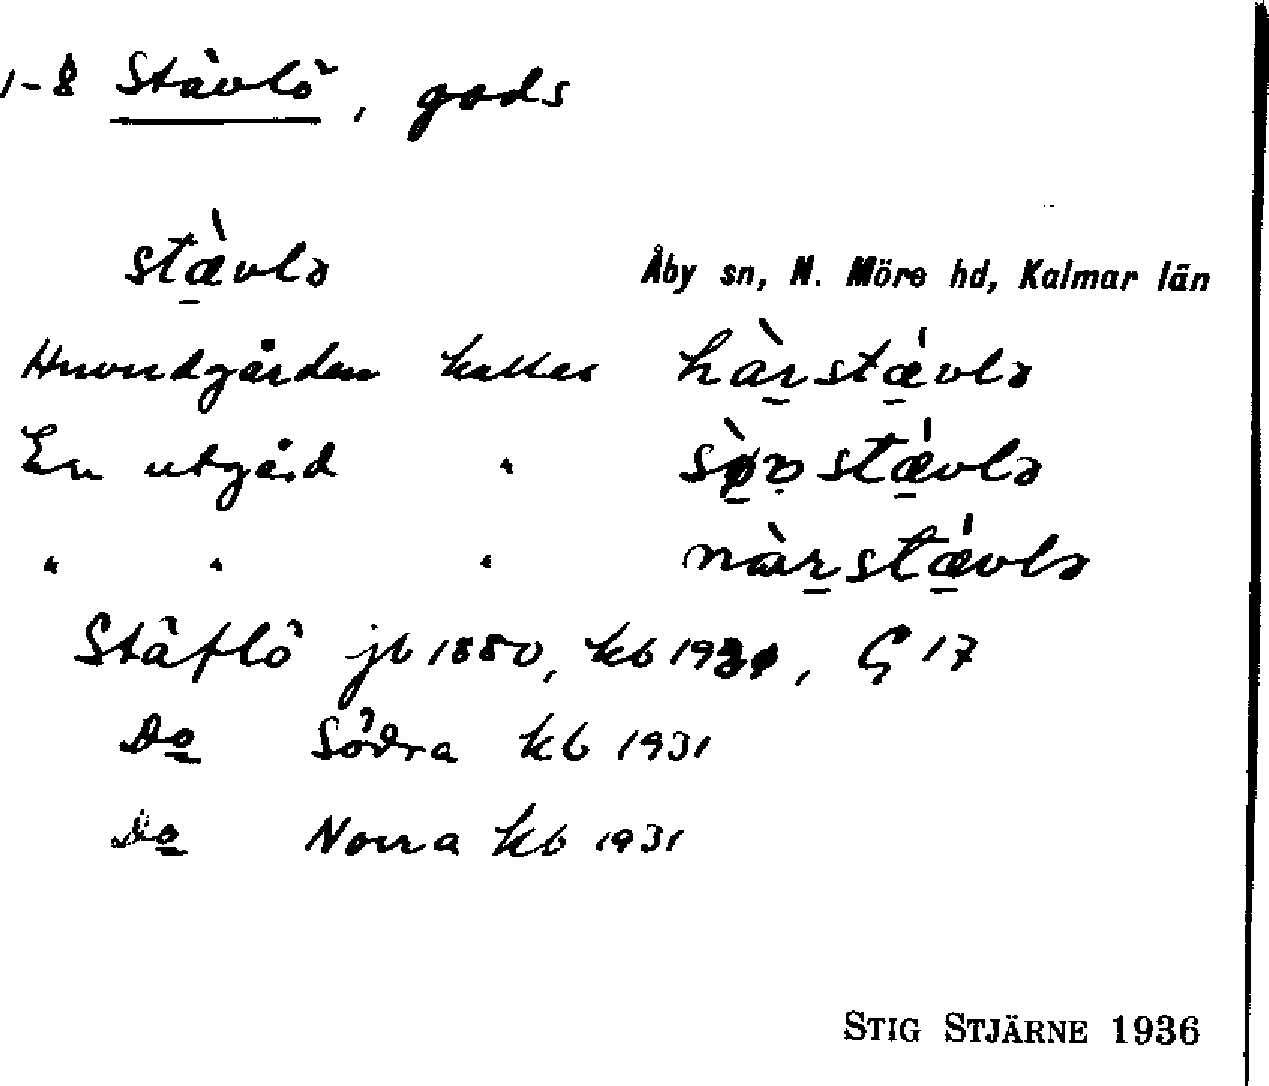 1-8 Stävlö, gods
stæ̀vlə
Åby sn, N. Möre hd, Kalmar län
Huvudgården kallas hàrstǽvlə
En utgård " sø̀ʋstǽvlə
" " " nàrstǽvlə
Stäflö jb 1880, kb 1931, G 17
Do Södra kb 1931
Do Norra kb 1931
STIG STJÄRNE 1936